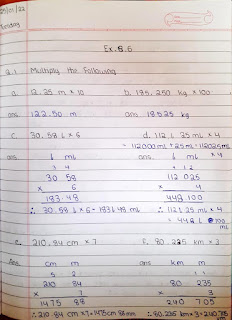 25/01/22
Tuesday
Ex. 8.6
Q.1 Multiply the following
a. 12.25 m × 10 b. 185.250 kg × 100
ans 122.50 m ans 18525 kg
c. 30.58 l × 6 d. 112 l 25 ml × 4
= 112000 ml + 25 ml = 112025 ml
ans. l ml ans. l ml × 4
3 4 + 1 2
30 58 112 025
× 6 × 4
183.48 448 100
∴ 30.58 l × 6 = 183 l 48 ml ∴ 112 l 25 ml × 4
= 448 l 100 ml
e. 210.84 cm × 7 f. 80.235 km × 3
Ans cm m km m
5 2 1 1
210 84 80 235
× 7 × 3
1475 88 240 705
∴ 210.84 cm × 7 = 1475 cm 88 mm ∴ 80.235 km × 3 = 240.705